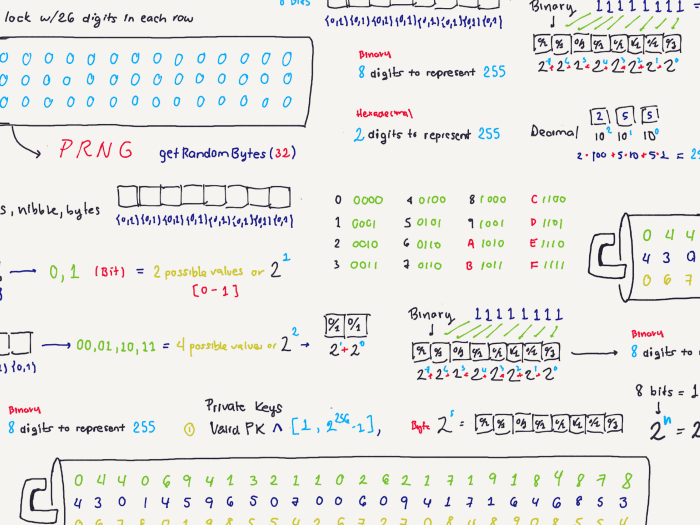 lock w/26 digits in each row
0 0 0 0 0 0 0 0 0 0 0 0 0 0
0 0 0 0 0 0 0 0 0 0 0 0 0 0
0 0 0 0 0 0 0 0 0 0 0 0 0 0
PRNG getRandomBytes (32)
{0,1} {0,1} {0,1} {0,1} {0,1} {0,1} {0,1} {0,1}
Binary
8 digits to represent 255
Hexadecimal
2 digits to represent 255
Binary 11111111 =
0/1 0/1 0/1 0/1 0/1 0/1 0/1 0/1
2^7 + 2^6 + 2^5 + 2^4 + 2^3 + 2^2 + 2^1 + 2^0
Decimal 2 5 5
10^2 10^1 10^0
2·100 + 5·10 + 5·1 =
nibble, bytes
{0,1} {0,1} {0,1} {0,1} {0,1} {0,1} {0,1} {0,1}
0 0000 4 0100 8 1000 C 1100
1 0001 5 0101 9 1001 D 1101
2 0010 6 0110 A 1010 E 1110
3 0011 7 0111 B 1011 F 1111
0 4 4
4 3 0
0 6 7
0,1 (Bit) = 2 possible values or 2^1
[0-1]
00,01,10,11 = 4 possible values or 2^2
0/1 0/1
2^1 + 2^0
{0,1}
Binary 11111111
0/1 0/1 0/1 0/1 0/1 0/1 0/1 0/1
2^7 + 2^6 + 2^5 + 2^4 + 2^3 + 2^2 + 2^1 + 2^0
Binary
8 digits to
8 bits = 1
2^n = 2
Binary
8 digits to represent 255
Private Keys
① Valid PK ∧ [1, 2^256 -1],
Byte 2^8 = 0/1 0/1 0/1 0/1 0/1 0/1 0/1 0/1
0 4 4 0 6 9 4 1 3 2 1 1 0 2 6 2 1 7 1 9 1 8 4 8 7 8
4 3 0 1 4 5 9 6 5 0 7 0 0 6 0 9 4 1 7 1 6 4 6 8 5 3